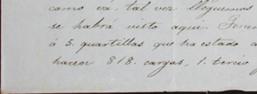 como va. tal vez lleguemos
se habrá visto aqui.
ó 3. quartillas que ha estado á
hacer 818. cargas, 1. tercio